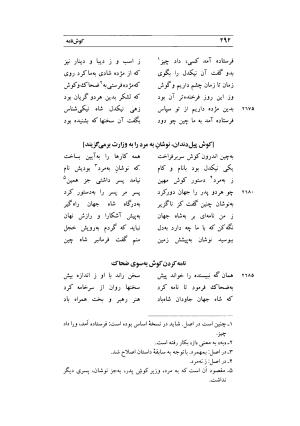 ۲۹۲ کوش‌نامه
فرستاده آمد کسی، داد چیز¹ ز اسب و ز دیبا و دینار نیز
بدو گفت آن نیکدل را بگوی که از مژده شادی به‌ما کرد روی
زمان تا زمان چشم داریم و گوش که مژده فرستی به² ضحاک و کوش
وز این روز فرخنده‌تر آن بود که لشکر بدین هر دو گریان بود
۲۱۷۵ بدین مژده داریم از تو سپاس زهی نیکدل شاه نیکی‌شناس
فرستاده آمد به ما چین چو دود بگفت آن سخنها که بشنیده بود
[کوش پیل‌دندان، نوشان به مرد را به وزارت برمی‌گزیند]
به‌چین اندرون کوش سربرفراخت همه کارها را به‌آیین بساخت
یکی نیکدل بود بانام و کام که نوشان به‌مرد³ بودیش نام
ز به‌مرد⁴ دستور کوش مهین نماند پسر داشتی جز همین⁵
۲۱۸۰ چو هردو پدر را جهان دور کرد سر مر پسر را به‌دستور کرد
به‌نوشان چنین گفت کز ناگزیر به‌درگاه شاه جهان راه‌گیر
ز من نامه‌ای بر به‌شاه جهان به‌پیش آشکارا و رازش نهان
نگه‌کن که با ما چه دارد به‌دل نباید که گردم به‌رویش خجل
ببوسید نوشان به‌پیشش زمین منم گفت فرمانبر شاه چین
نامه کردن کوش به‌سوی ضحاک
۲۱۸۵ همان گه نبیسنده را خواند پیش سخن راند با او ز اندازه بیش
به‌ضحاک فرمود تا نامه کرد سخنها روان از سرخامه کرد
که شاه جهان جاودان شاه‌باد هنر رهبر و بخت همراه باد
۱ـ چنین است در اصل. شاید در نسخهٔ اساس بوده است: فرستاده آمد، ورا داد چیز.
۲ـ «به» به معنی «از» بکار رفته است.
۳ـ در اصل: بمهمرد. باتوجه به سابقهٔ داستان اصلاح شد.
۴ـ در اصل: ز نه‌مرد.
۵ـ مقصود آن است که به مرد، وزیر کوش پدر، به‌جز نوشان، پسری دیگر نداشت.